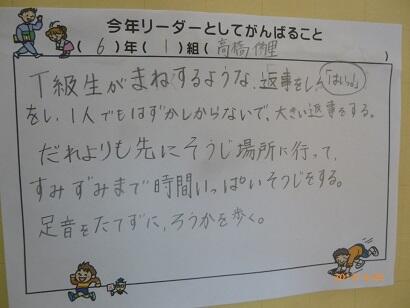 今年リーダーとしてがんばること
(6)年(1)組(高橋 侑里)
下級生がまねするような、返事をし、「はいっ」
をし、1人でもはずかしからないで、大きい返事をする。
だれよりも先にそうじ場所に行って、
すみずみまで時間いっぱいそうじをする。
足音をたてずに、ろうかを歩く。